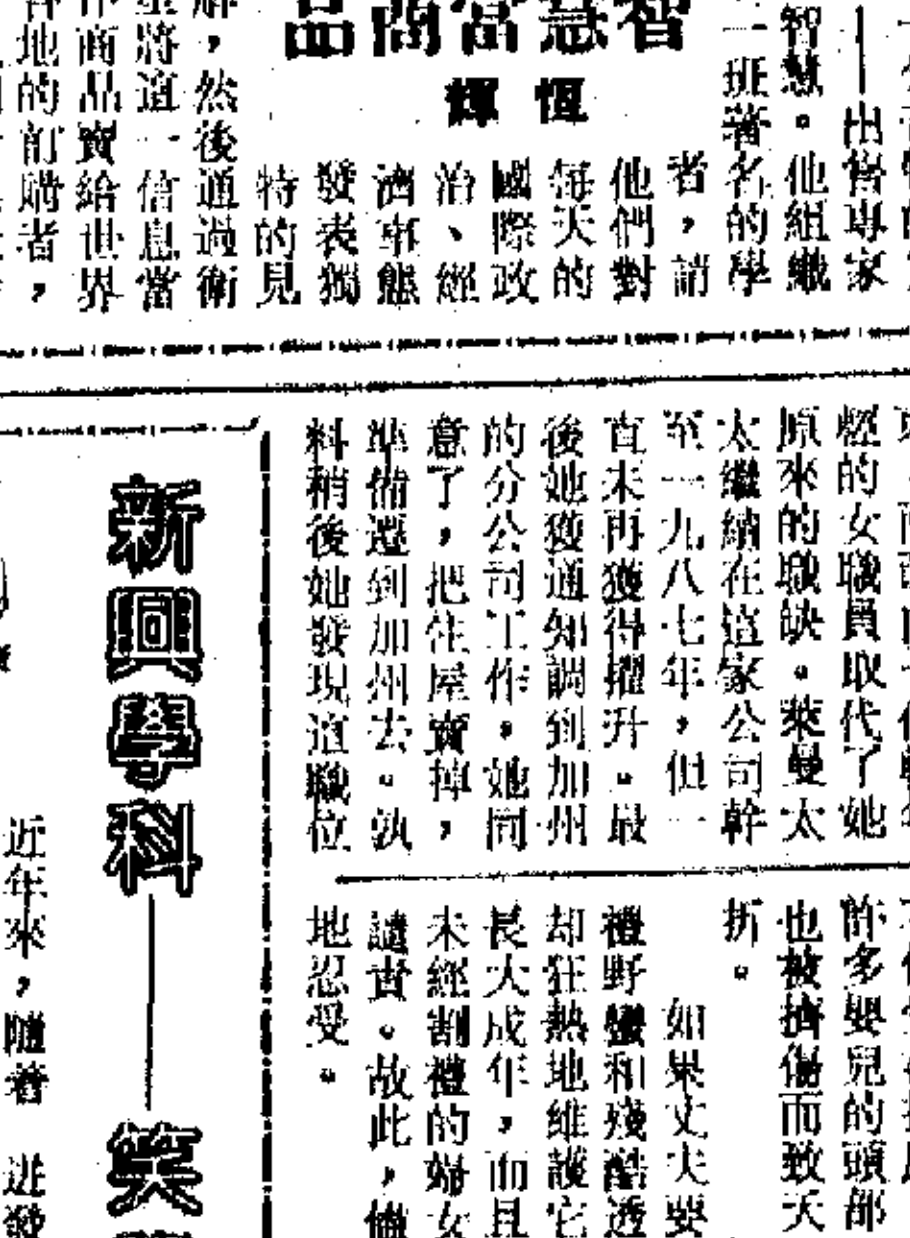 智慧當商品
恆輝
出售專家
智慧。他組織
一班著名的學
者，請
他們對
每天的
國際政
治、經
濟事態
發表獨
特的見
解，然後通過衛
星將這一信息當
作商品賣給世界
各地的訂購者，
經的女職員取代了她
原來的職缺。萊曼太
太繼續在這家公司幹
至一九八七年，但一
直未再獲得擢升。最
後她獲通知調到加州
的分公司工作。她同
意了，把住屋賣掉，
準備遷到加州去。孰
料稍後她發現這職位
許多嬰兒的頭部
也被擠傷而致夭
折。
如果丈夫要
禮野蠻和殘酷透
却狂熱地維護它
長大成年，而且
未經割禮的婦女
譴責。故此，
地忍受。
新興學科——笑
近年來，隨着